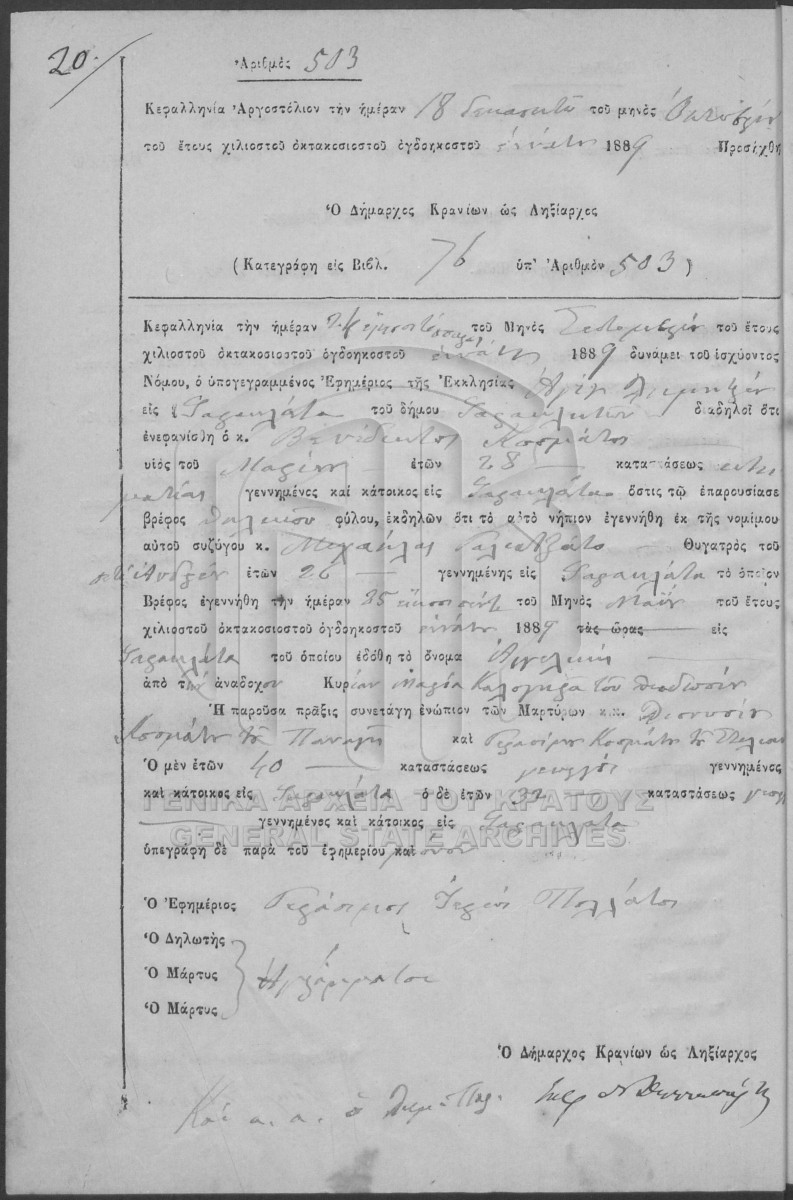 20.
Ἀριθμὸς 503
Κεφαλληνία Ἀργοστόλιον τὴν ἡμέραν 18 δεκαοκτὼ τοῦ μηνὸς Ὀκτωβρίου
τοῦ ἔτους χιλιοστοῦ ὀκτακοσιοστοῦ ὀγδοηκοστοῦ ἐννάτου 1889 Προσήχθη
Ὁ Δήμαρχος Κρανίων ὡς Ληξίαρχος
(Κατεγράφη εἰς Βιβλ. 76 ὑπ' Ἀριθμὸν 503)
Κεφαλληνία τὴν ἡμέραν τοῦ Μηνὸς Σεπτεμβρίου τοῦ ἔτους
χιλιοστοῦ ὀκτακοσιοστοῦ ὀγδοηκοστοῦ ἐννάτου 1889 δυνάμει τοῦ ἰσχύοντος
Νόμου, ὁ ὑπογεγραμμένος Ἐφημέριος τῆς Ἐκκλησίας Ἁγίου Δημητρίου
εἰς Φαρακλάτα τοῦ δήμου διαδηλοῖ ὅτι
ἐνεφανίσθη ὁ κ. Βενέδικτος Κοσμάτος
υἱὸς τοῦ Μαρίνου ἐτῶν 28 καταστάσεως κτη
ματίας γεννημένος καὶ κάτοικος εἰς Φαρακλάτα ὅστις τῷ ἐπαρουσίασε
βρέφος θηλυκοῦ φύλου, ἐκδηλῶν ὅτι τὸ αὐτὸ νήπιον ἐγεννήθη ἐκ τῆς νομίμου
αὐτοῦ συζύγου κ. Μιχαήλας Γαλιατζάτου Θυγατρὸς τοῦ
Ἀνδρέου ἐτῶν 26 γεννημένης εἰς Φαρακλάτα τὸ ὁποῖον
Βρέφος ἐγεννήθη τὴν ἡμέραν 25 εἴκοσι πέντε τοῦ Μηνὸς Μαΐου τοῦ ἔτους
χιλιοστοῦ ὀκτακοσιοστοῦ ὀγδοηκοστοῦ ἐννάτου 1889 τὰς ὥρας εἰς
Φαρακλάτα τοῦ ὁποίου ἐδόθη τὸ ὄνομα Ἀγγελική
ἀπὸ τὴν ἀνάδοχον Κυρίαν Μαρία Καλογηρᾶ τοῦ Θεοδοσίου
Ἡ παροῦσα πρᾶξις συνετάγη ἐνώπιον τῶν Μαρτύρων κ.κ. Διονυσίου
Κοσμάτου τοῦ Παναγῆ καὶ Γερασίμου Κοσμάτου τοῦ
Ὁ μὲν ἐτῶν 40 καταστάσεως γεωργὸς γεννημένος
καὶ κάτοικος εἰς Φαρακλάτα ὁ δὲ ἐτῶν καταστάσεως γεωργ
γεννημένος καὶ κάτοικος εἰς Φαρακλάτα
ὑπεγράφη δὲ παρὰ τοῦ ἐφημερίου καὶ μόνον
ΓΕΝΙΚΑ ΑΡΧΕΙΑ ΤΟΥ ΚΡΑΤΟΥΣ
GENERAL STATE ARCHIVES
Ὁ Ἐφημέριος Γεράσιμος Ἱερεὺς Πολλάτος
Ὁ Δηλωτὴς
Ὁ Μάρτυς Ἀγράμματοι
Ὁ Μάρτυς
Ὁ Δήμαρχος Κρανίων ὡς Ληξίαρχος